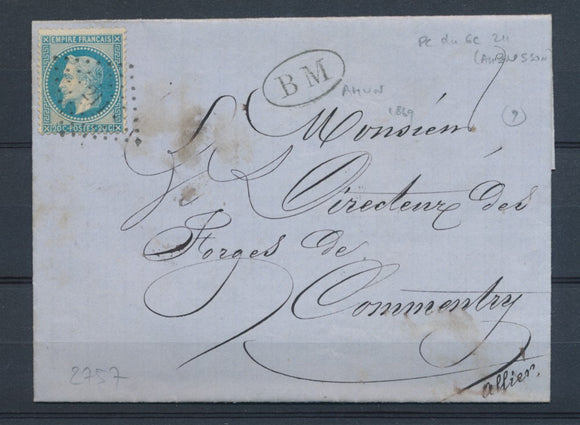 EMPIRE FRANÇAIS
20c POSTES 20c
BM
PC du GC 211
(AUBUSSON)
AHUN
1869
Monsieur
Directeur des
Forges de
Commentry
Allier.
2757